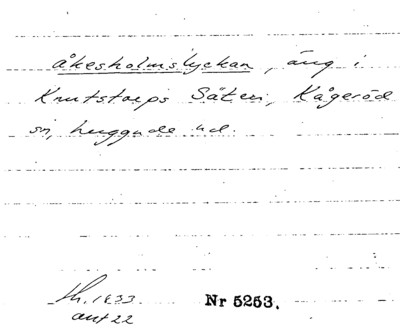 åkesholmslyckan, äng i
Knutstorps Säteri, Kågeröd
sn, huggnde ud.
th. 1833
ant 22
Nr 5253.